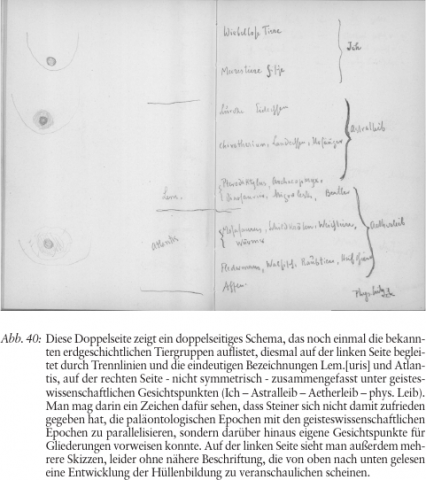 Wirbellose Tiere
Ich
Meerestiere
Astralleib
Lem.
Atlantis
Aetherleib
Affen
Phys. Leib
Abb. 40: Diese Doppelseite zeigt ein doppelseitiges Schema, das noch einmal die bekann-
ten erdgeschichtlichen Tiergruppen auflistet, diesmal auf der linken Seite beglei-
tet durch Trennlinien und die eindeutigen Bezeichnungen Lem.[uris] und Atlan-
tis, auf der rechten Seite - nicht symmetrisch - zusammengefasst unter geistes-
wissenschaftlichen Gesichtspunkten (Ich – Astralleib – Aetherleib – phys. Leib).
Man mag darin ein Zeichen dafür sehen, dass Steiner sich nicht damit zufrieden
gegeben hat, die paläontologischen Epochen mit den geisteswissenschaftlichen
Epochen zu parallelisieren, sondern darüber hinaus eigene Gesichtspunkte für
Gliederungen vorweisen konnte. Auf der linken Seite sieht man außerdem meh-
rere Skizzen, leider ohne nähere Beschriftung, die von oben nach unten gelesen
eine Entwicklung der Hüllenbildung zu veranschaulichen scheinen.